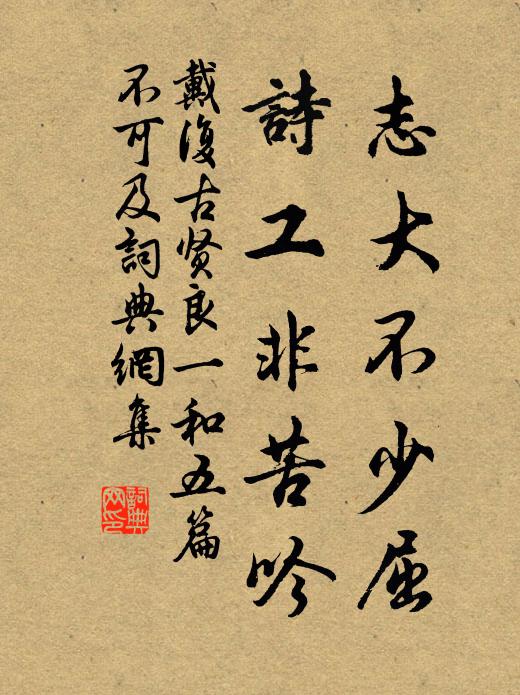 志大不少屈
詩工非苦吟
戴復古贤良一和五篇
不可及詞典網集
詞典网印